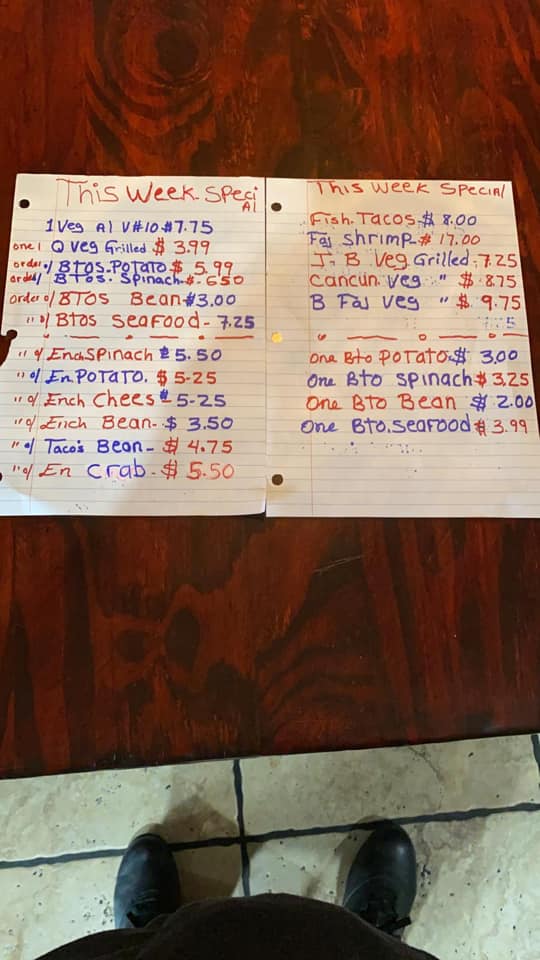 This Week Speci
Al
1 Veg Al V#10 $7.75
one 1 Q Veg Grilled $ 3.99
order o/ BTOS-POTATO $ 5.99
order o/ BTOS. Spinach-$-650
order o/ BTOS Bean-$3.00
" o/ Btos SeaFood- 7.25
" o/ EnchSPinach $5.50
" o/ En.POTATO. $ 5-25
" o/ Ench Chees $ 5-25
" o/ Ench Bean-$ 3.50
" o/ Taco's Bean- $ 4.75
" o/ En Crab-$ 5.50
This Week Special
Fish.Tacos-$ 8.00
Faj Shrimp-$ 17.00
J. B Veg Grilled-7.25
Cancun Veg " $ 8.75
B Faj Veg " $ 9.75
One Bto POTATO-$ 3.00
One Bto SPinach $ 3.25
One Bto Bean $ 2.00
One Bto.Seafood $ 3.99